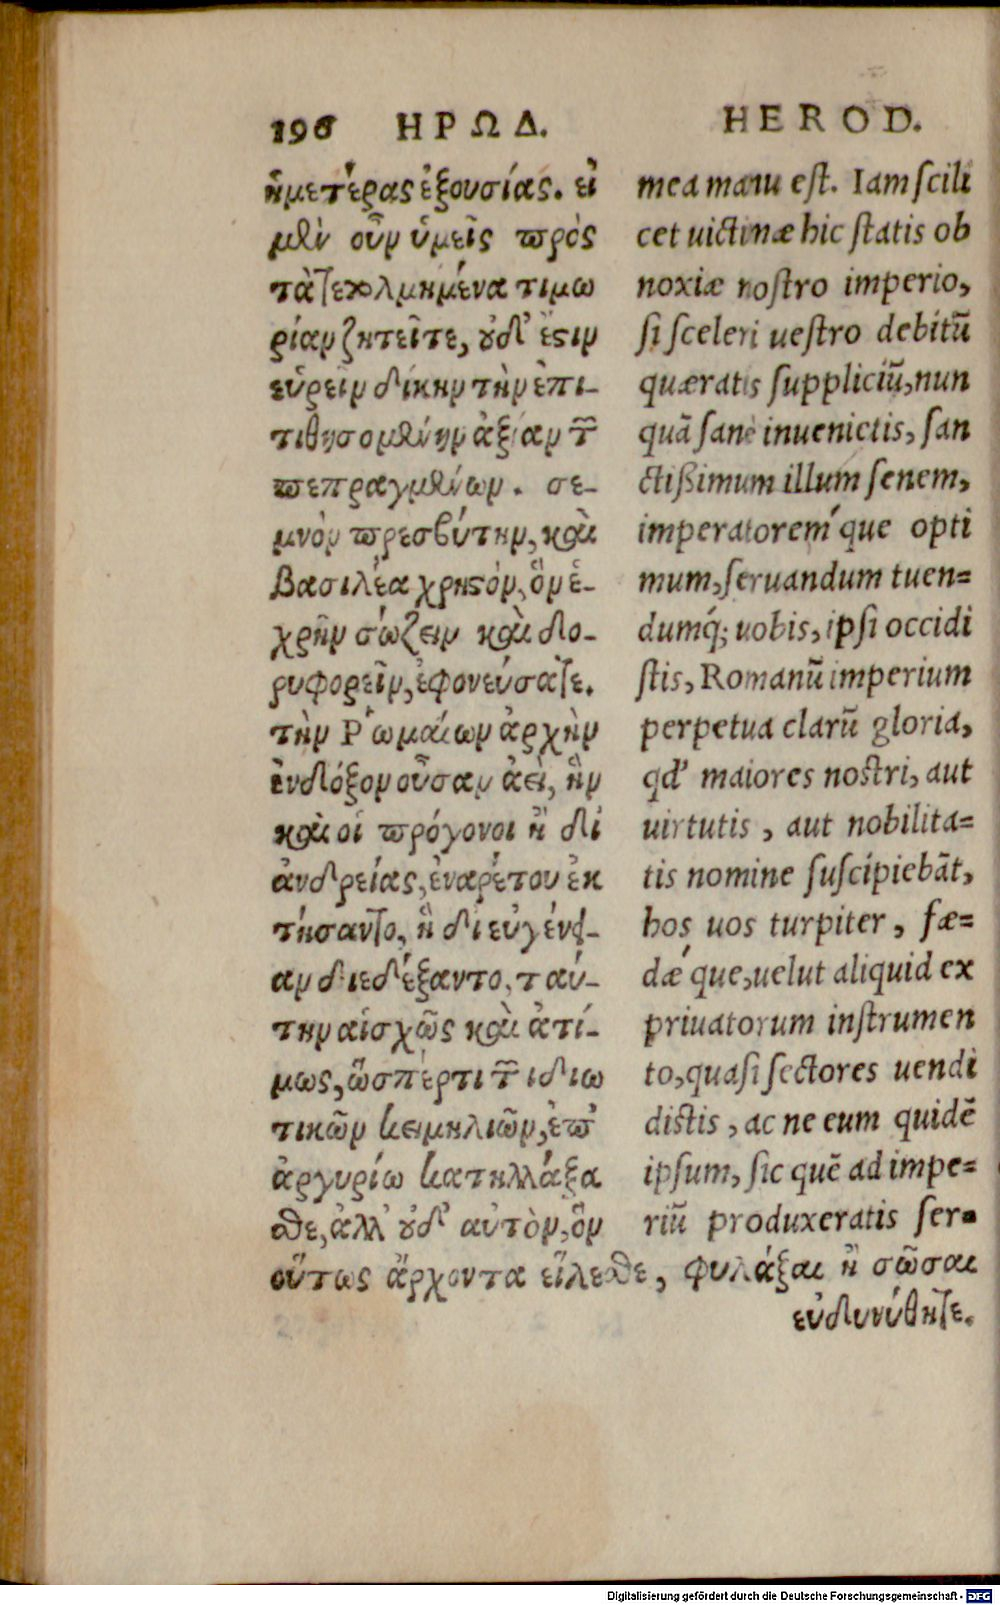 196 ΗΡΩΔ.
ἡμετέρας ἐξουσίας. εἰ
μὲν οὖν ὑμεῖς πρὸς
τὰ τετολμημένα τιμω
ρίαν ζητεῖτε, οὐδ' ἔστιν
εὑρεῖν δίκην τὴν ἐπι-
τιθησομένην ἀξίαν τῶν
πεπραγμένων. σε-
μνὸν πρεσβύτην, καὶ
βασιλέα χρηστὸν, ὃν ἐ-
χρῆν σώζειν καὶ δο-
ρυφορεῖν, ἐφονεύσατε.
τὴν Ῥωμαίων ἀρχὴν
ἔνδοξον οὖσαν ἀεὶ, ἣν
καὶ οἱ πρόγονοι ἢ δι'
ἀνδρείας ἐναρέτου ἐκ
τήσαντο, ἢ δι' εὐγένει-
αν διεδέξαντο, ταύ-
την αἰσχρῶς καὶ ἀτί-
μως, ὥσπερ τι τῶν ἰδιω
τικῶν κειμηλιῶν, ἐπ'
ἀργυρίω κατηλλάξα
σθε, ἀλλ' οὐδ' αὐτὸν, ὃν
οὕτως ἄρχοντα εἵλεσθε, φυλάξαι ἢ σῶσαι
εὐδυνύθητε.
HEROD.
mea manu est. Iam scili
cet uictimæ hic statis ob
noxiæ nostro imperio,
si sceleri uestro debitū
quæratis suppliciū, nun
quā sane inuenietis, san
ctißimum illum senem,
imperatoreḿque opti
mum, seruandum tuen=
dumq́; uobis, ipsi occidi
stis, Romanū imperium
perpetua clarū gloria,
qd' maiores nostri, aut
uirtutis, aut nobilita=
tis nomine suscipiebāt,
hos uos turpiter, fæ=
dǽque, uelut aliquid ex
priuatorum instrumen
to, quasi sectores uendi
distis, ac ne eum quidē
ipsum, sic quē ad impe=
riū produxeratis ser=
Digitalisierung gefördert durch die Deutsche Forschungsgemeinschaft - DFG